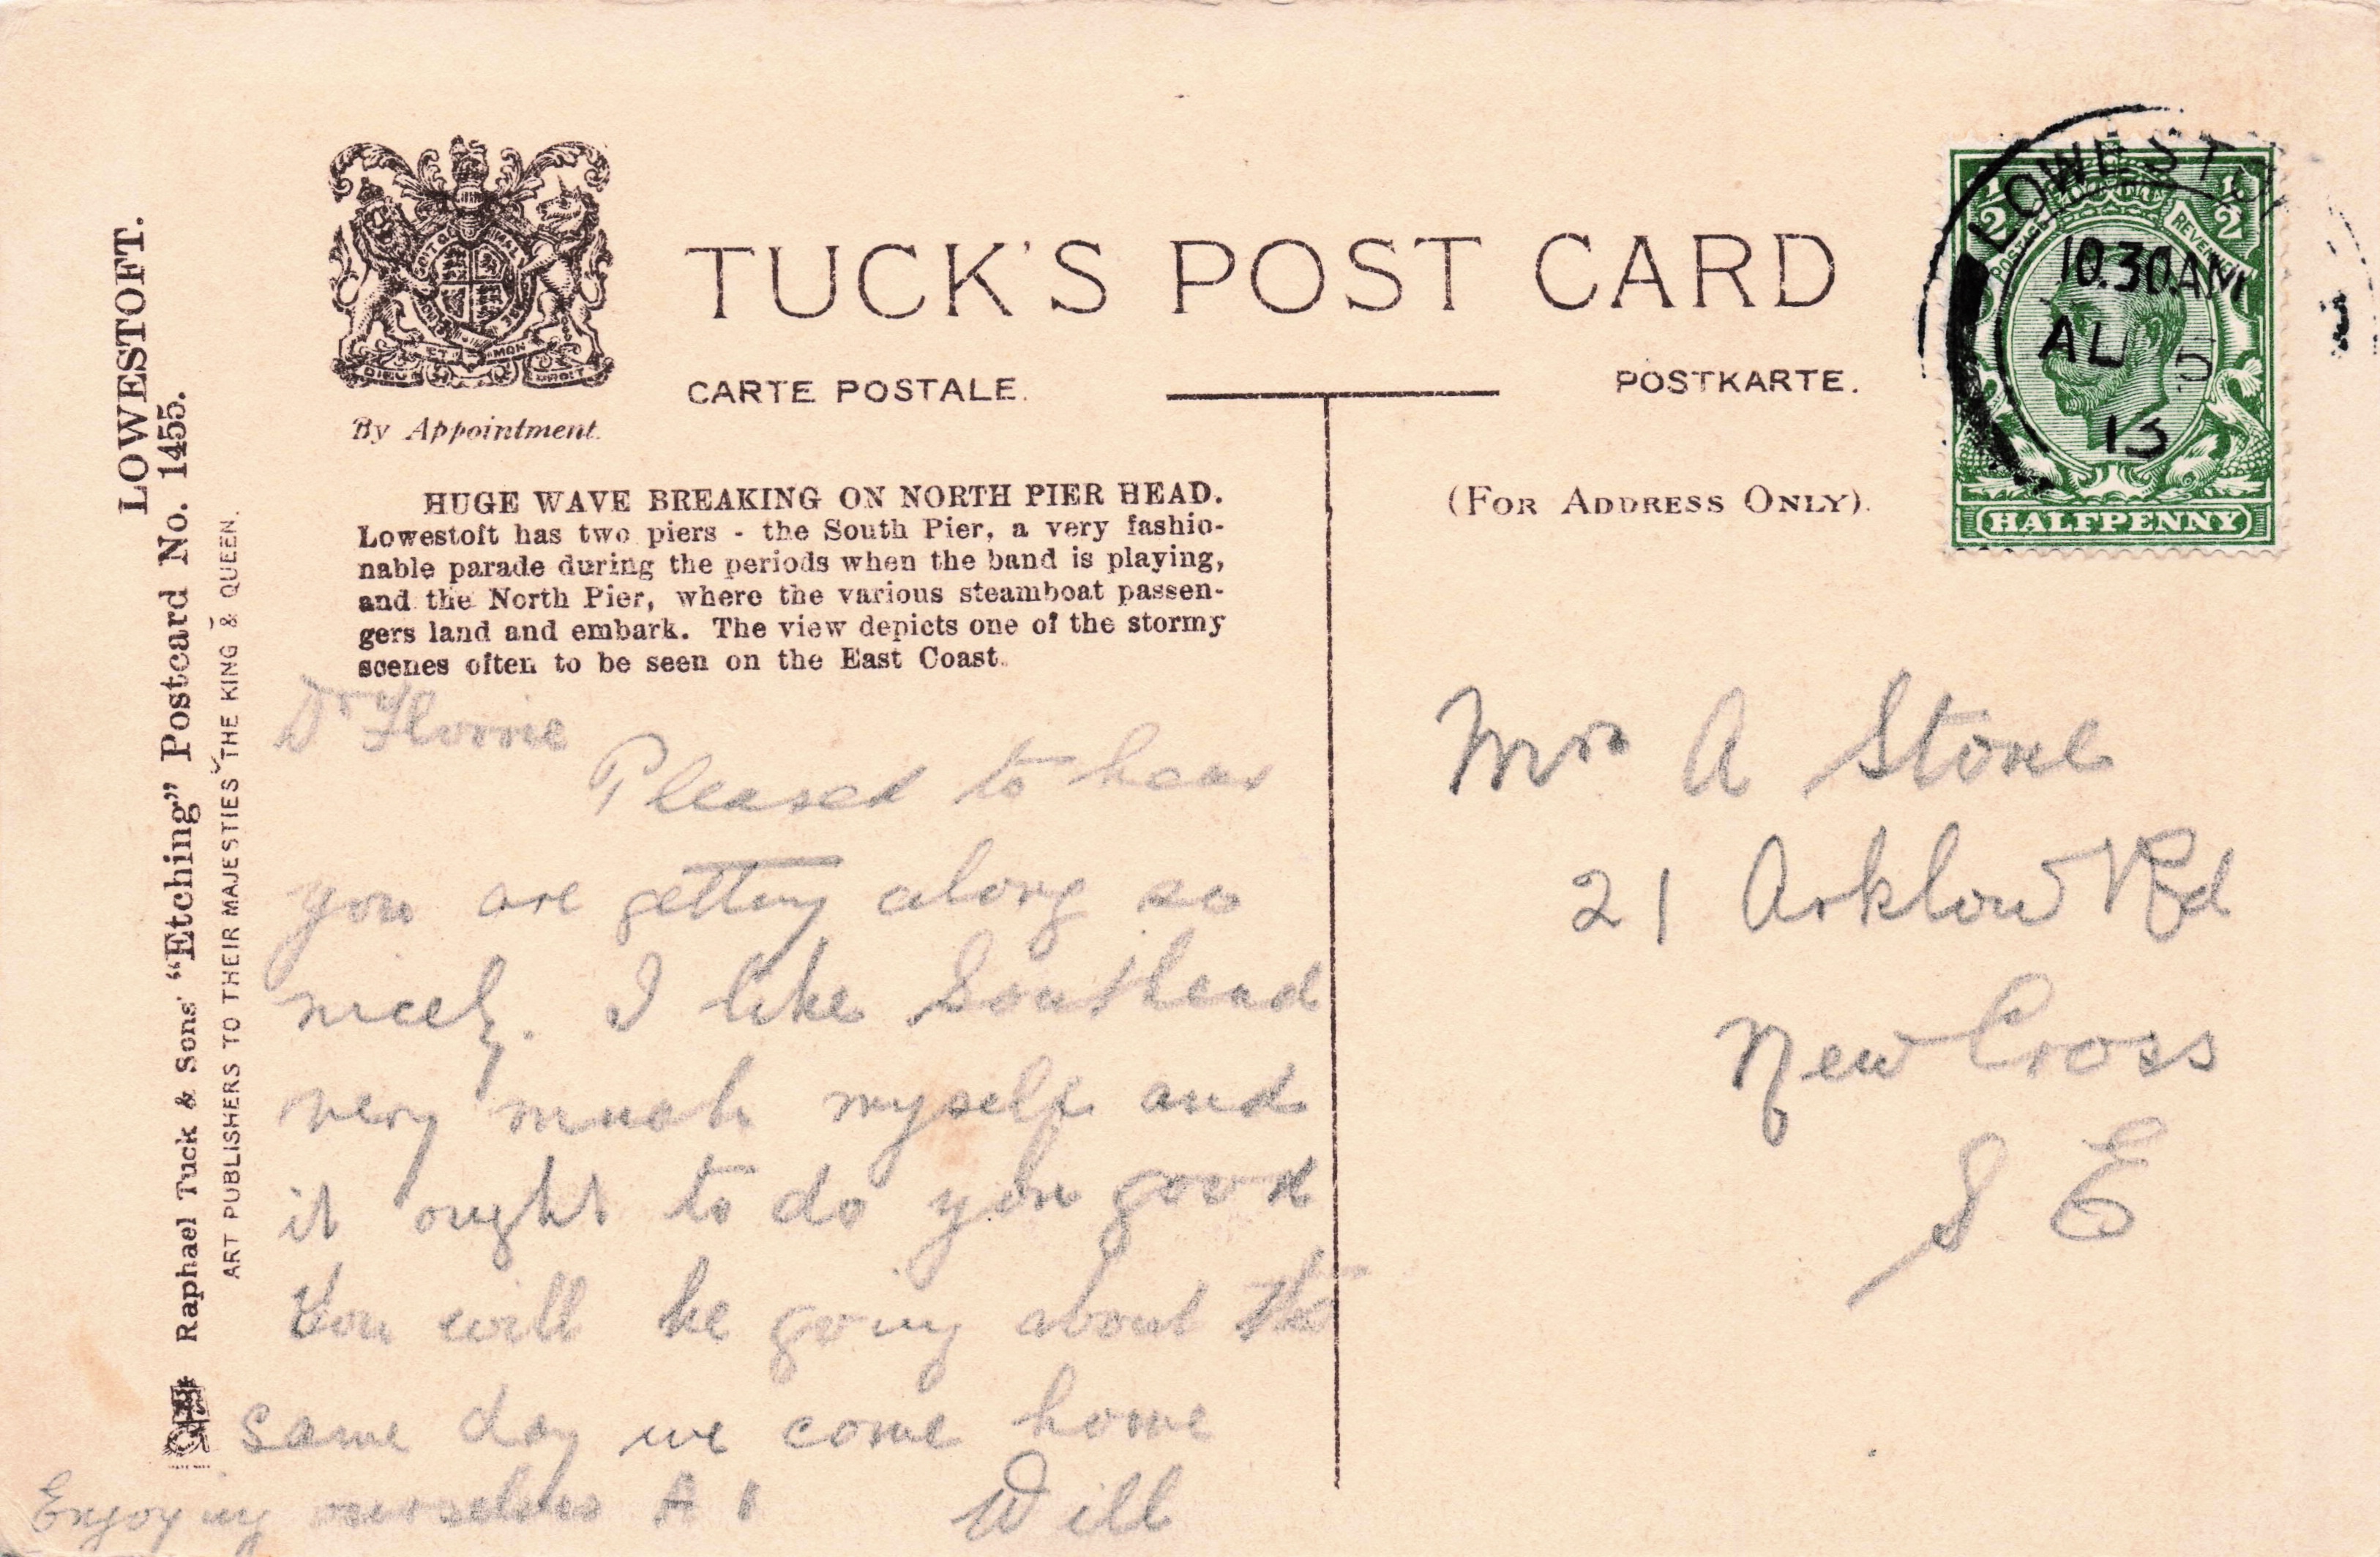 LOWESTOFT.
Raphael Tuck & Sons' "Etching" Postcard No. 1455.
ART PUBLISHERS TO THEIR MAJESTIES THE KING & QUEEN.
By Appointment.
TUCK'S POST CARD
CARTE POSTALE.
POSTKARTE.
HUGE WAVE BREAKING ON NORTH PIER HEAD.
Lowestoft has two piers - the South Pier, a very fashio-
nable parade during the periods when the band is playing,
and the North Pier, where the various steamboat passen-
gers land and embark. The view depicts one of the stormy
scenes often to be seen on the East Coast.
(FOR ADDRESS ONLY).
LOWESTOFT
10.30AM
AU
13
POSTAGE
REVENUE
1/2
1/2
HALFPENNY
Dr
Pleased to hear
you are getting along so
nicely. I like Southend
very much myself and
it ought to do you good
You will be going about the
same day we come home
Enjoying ourselves A1 Will
Mrs A Stone
21 Arklow Rd
New Cross
S E